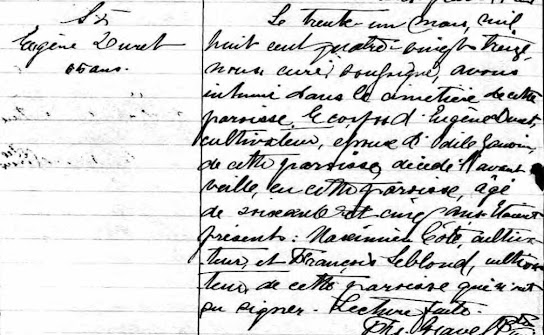 S
Eugène Duret
65 ans.
Le trente-un mars, mil
huit cent quatre-vingt-treize,
nous curé soussigné, avons
inhumé dans le cimetière de cette
paroisse, le corps d'Eugène Duret,
cultivateur, époux d'Odile Gauvin,
de cette paroisse, décédé l'avant
veille, en cette paroisse, âgé
de soixante et cinq ans. Étaient
présents: Maximien Côté, cultiva-
teur, et François Leblond, cultiva-
teur, de cette paroisse qui n'ont
su signer. Lecture faite.
Ptre